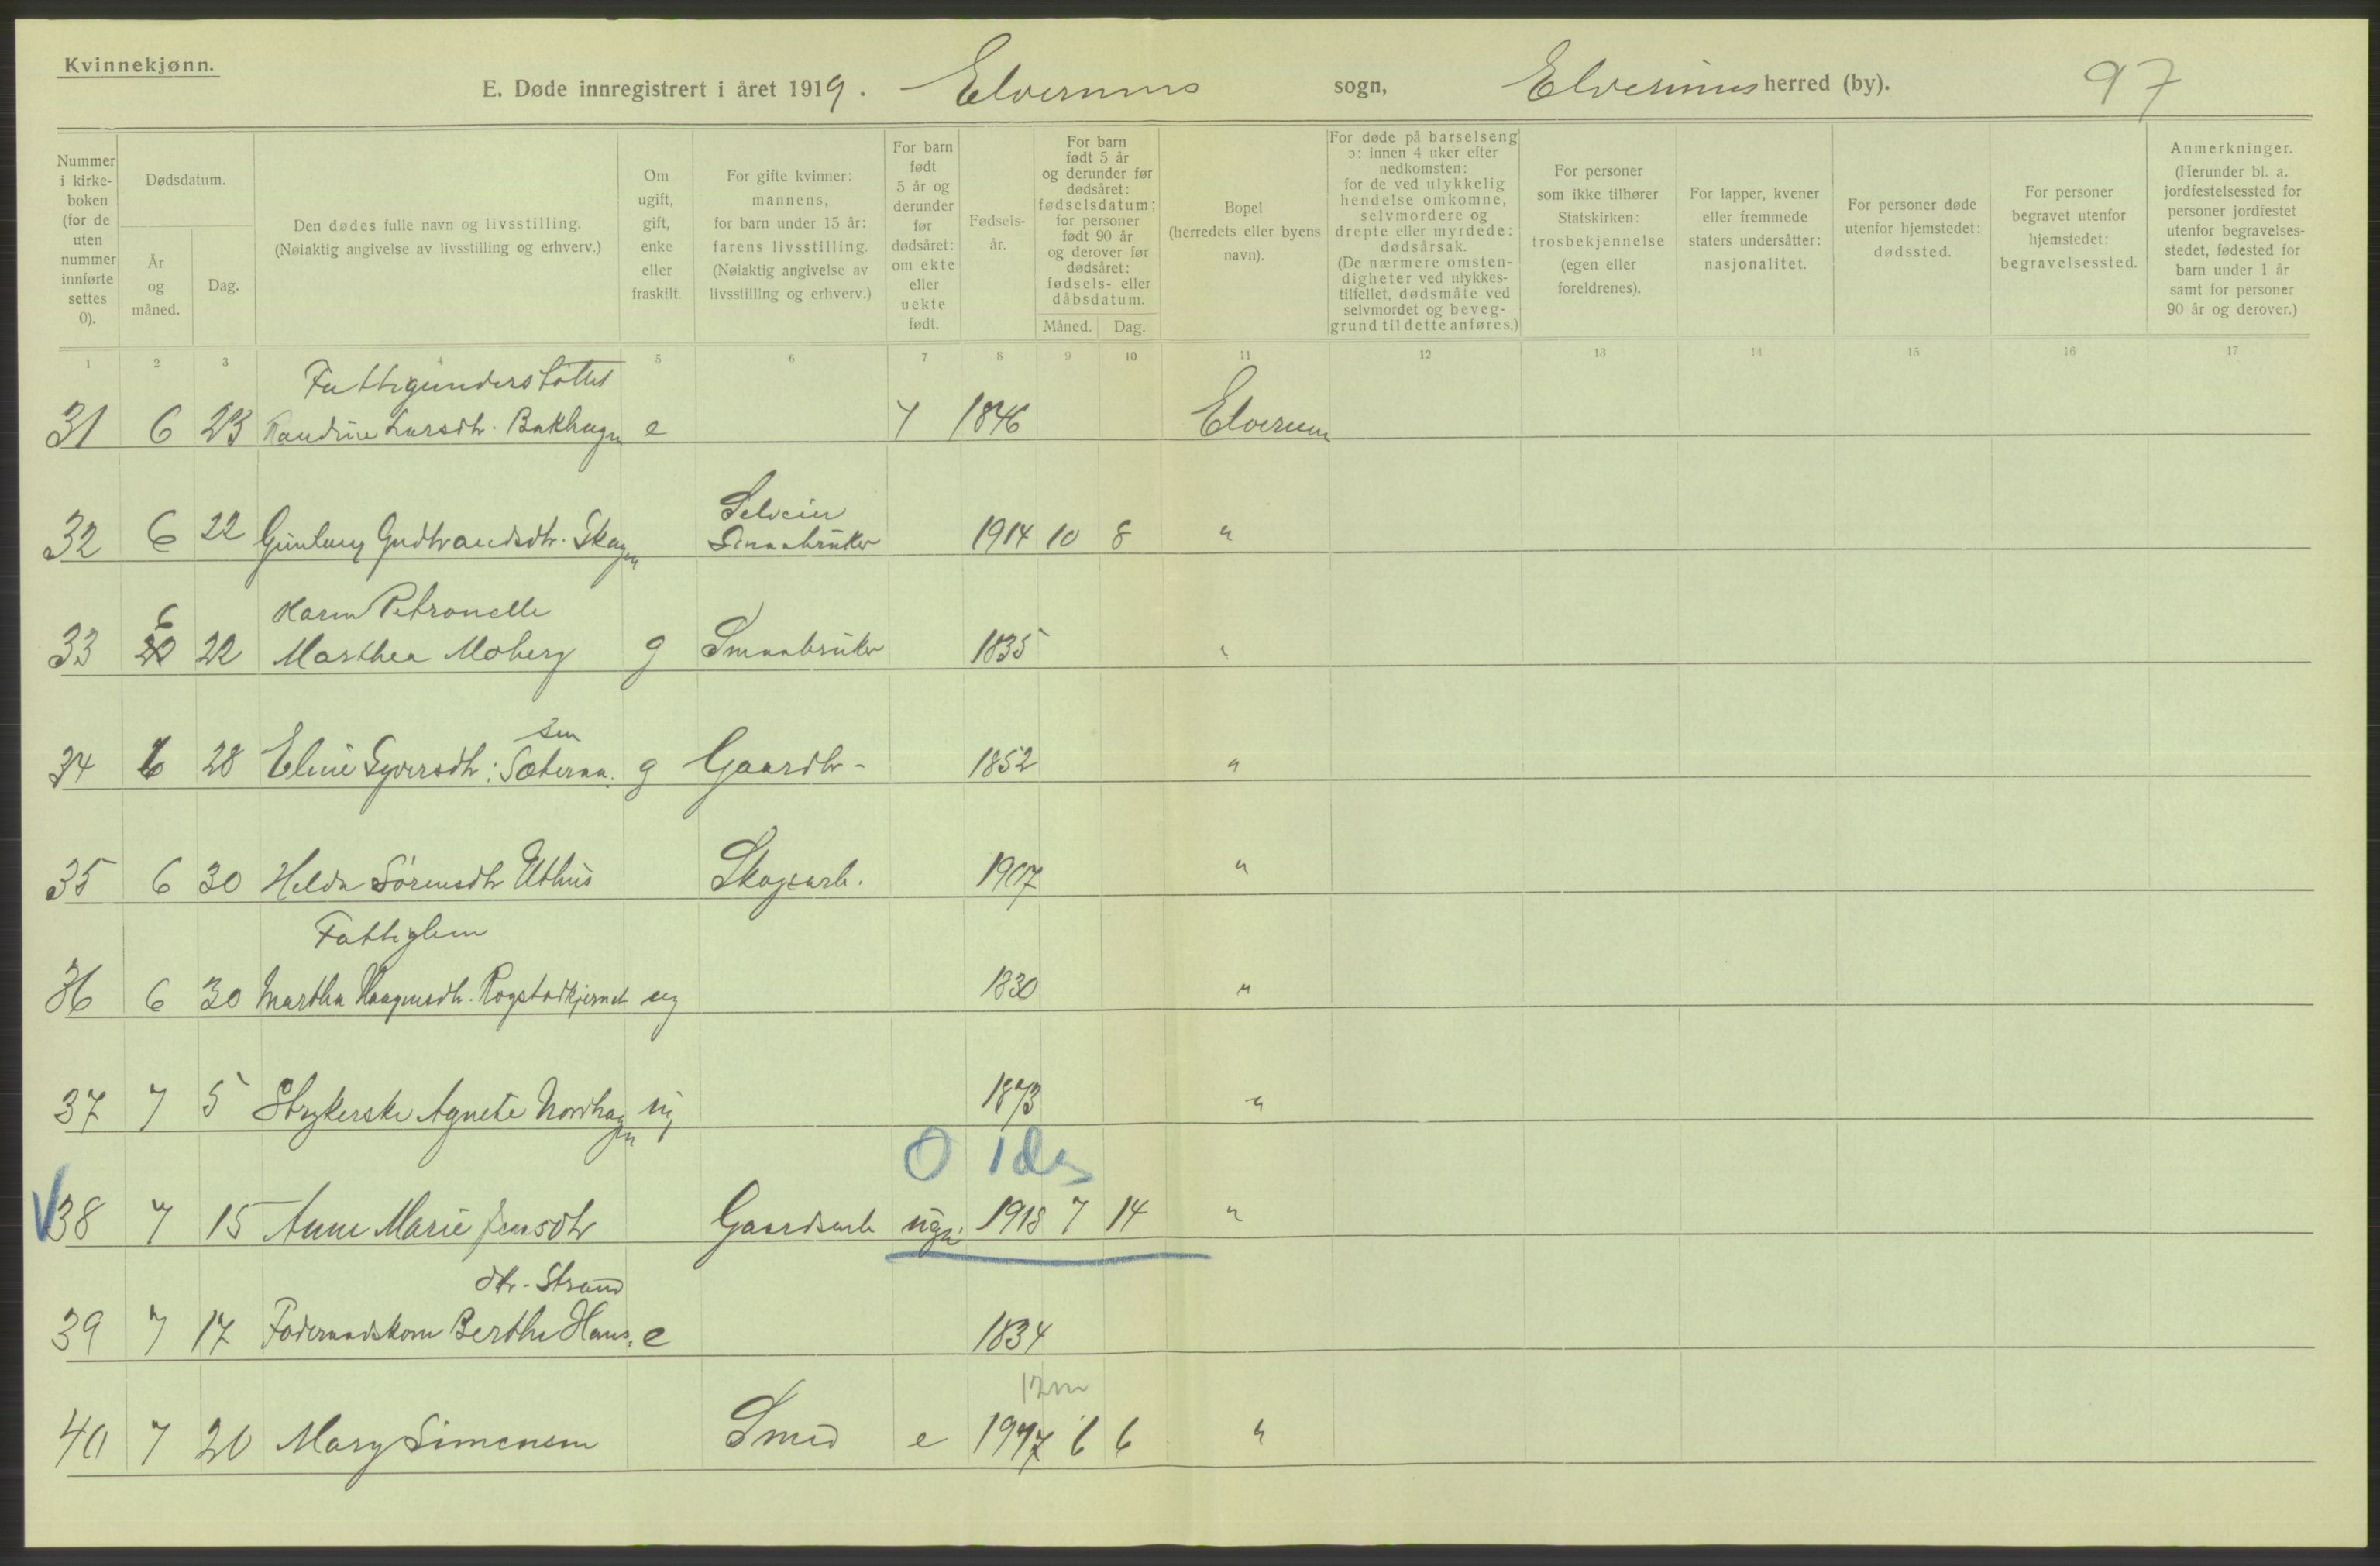 Kvinnekjønn.
E. Døde innregistrert i året 1919. Elverums sogn, Elverums herred (by). 97
Nummer i kirkeboken (for de uten nummer innførte settes 0).
Dødsdatum.
År og måned.
Dag.
Den dødes fulle navn og livsstilling. (Nøiaktig angivelse av livsstilling og erhverv.)
Om ugift, gift, enke eller fraskilt.
For gifte kvinner: mannens, for barn under 15 år: farens livsstilling. (Nøiaktig angivelse av livsstilling og erhverv.)
For barn født 5 år og derunder før dødsåret: om ekte eller uekte født.
Fødselsår.
For barn født 5 år og derunder før dødsåret: fødselsdatum; for personer født 90 år og derover før dødsåret: fødsels- eller dåbsdatum.
Måned. Dag.
Bopel (herredets eller byens navn).
For døde på barselseng ɔ: innen 4 uker efter nedkomsten: for de ved ulykkelig hendelse omkomne, selvmordere og drepte eller myrdede: dødsårsak. (De nærmere omstendigheter ved ulykkestilfellet, dødsmåte ved selvmordet og beveggrund til dette anføres.)
For personer som ikke tilhører Statskirken: trosbekjennelse (egen eller foreldrenes).
For lapper, kvener eller fremmede staters undersåtter: nasjonalitet.
For personer døde utenfor hjemstedet: dødssted.
For personer begravet utenfor hjemstedet: begravelsessted.
Anmerkninger. (Herunder bl. a. jordfestelsessted for personer jordfestet utenfor begravelsesstedet, fødested for barn under 1 år samt for personer 90 år og derover.)
1 2 3 4 5 6 7 8 9 10 11 12 13 14 15 16 17
Fattigunderstøttet
31 6 23 Randine Larsdtr. Bakhagen e 7 1846 Elverum
Selveier
32 6 22 Gudbrandsdtr. Skagen Smaabruker 1914 10 8 "
6 Karen Petronelle
33 22 Marthea Moberg g Smaabruker 1835 "
sen
34 6 28 Eline Syversdtr. Sæteraa. g Gaardbr- 1852 "
35 6 30 Helda Sörensdtr Uthus Skogsarb. 1907 "
Fattiglem
36 6 30 Martha Haagensdtr. Rogstadkjernet ug 1830 "
37 7 5 Strykerske Agnete Nordhagen ug 1873 "
0 1 da
38 7 15 Anne Marie Jensdtr Gaardsarb 1918 7 14 "
dtr. Strand
39 7 17 Föderaadskone Berthe Hans. e 1834
12 m
40 7 20 Mary Simensen Smed e 1917 6 6 "